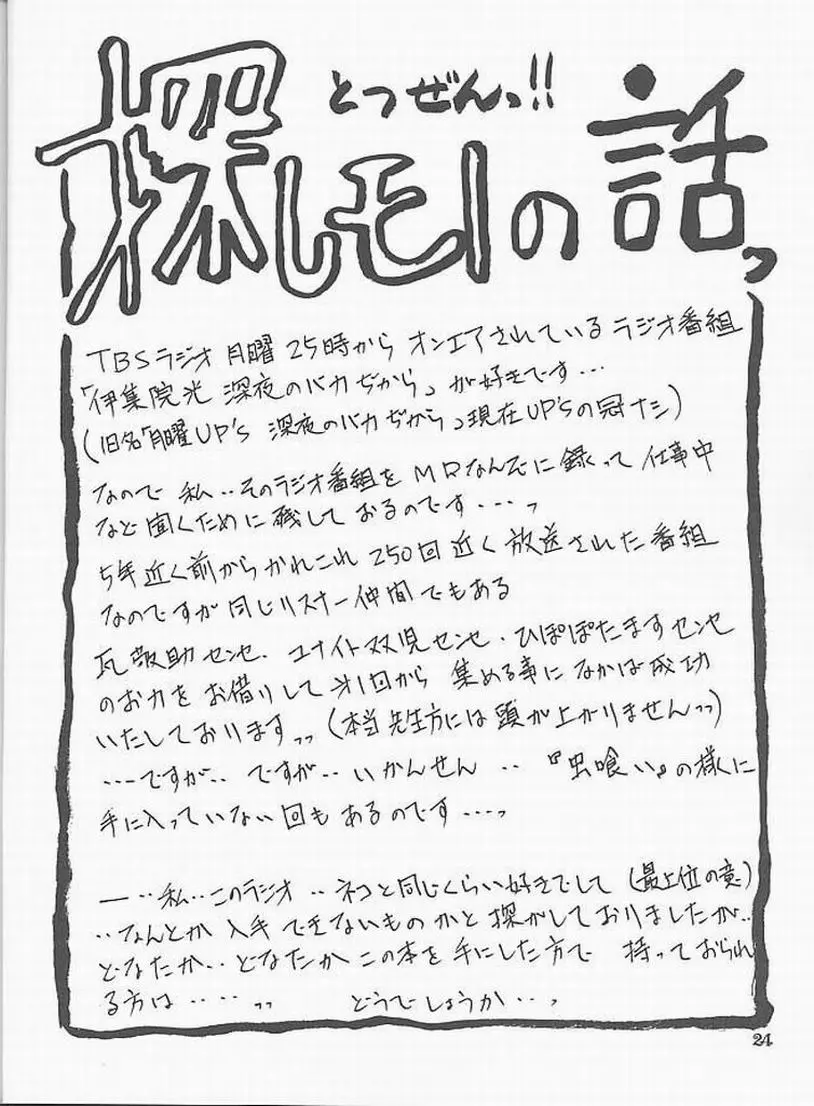 とつぜんっ!!
探しモノの話っ
TBSラジオ 月曜 25時から オンエアされている ラジオ番組
「伊集院光 深夜のバカぢから」が好きです…
(旧名「月曜UP'S 深夜のバカぢから」現在UP'Sの冠ナシ)
なので 私‥そのラジオ番組を MDなんぞに録って 仕事中
など聞くために残しておるのです‥‥っ
5年近く前からかれこれ 250回近く放送された番組
なのですが同じリスナー仲間でもある
瓦敬助センセ・ユナイト双児センセ・ひぽぽたますセンセ
のお力をお借りして 第1回から 集める事に なかば成功
いたしておりますっっ (本当先生方には頭が上がりませんっっ)
‥‥ですが‥ ですが‥ いかんせん ‥ 『虫喰い』の様に
手に入っていない回も あるのです‥‥っ
―‥私‥このラジオ‥ネコと同じくらい好きでして (最上位の意)
‥なんとか 入手できないものかと探がしておりましたが‥
どなたか‥どなたかこの本を手にした方で 持っておられ
る方は‥‥っっ どうでしょうか‥っ
24